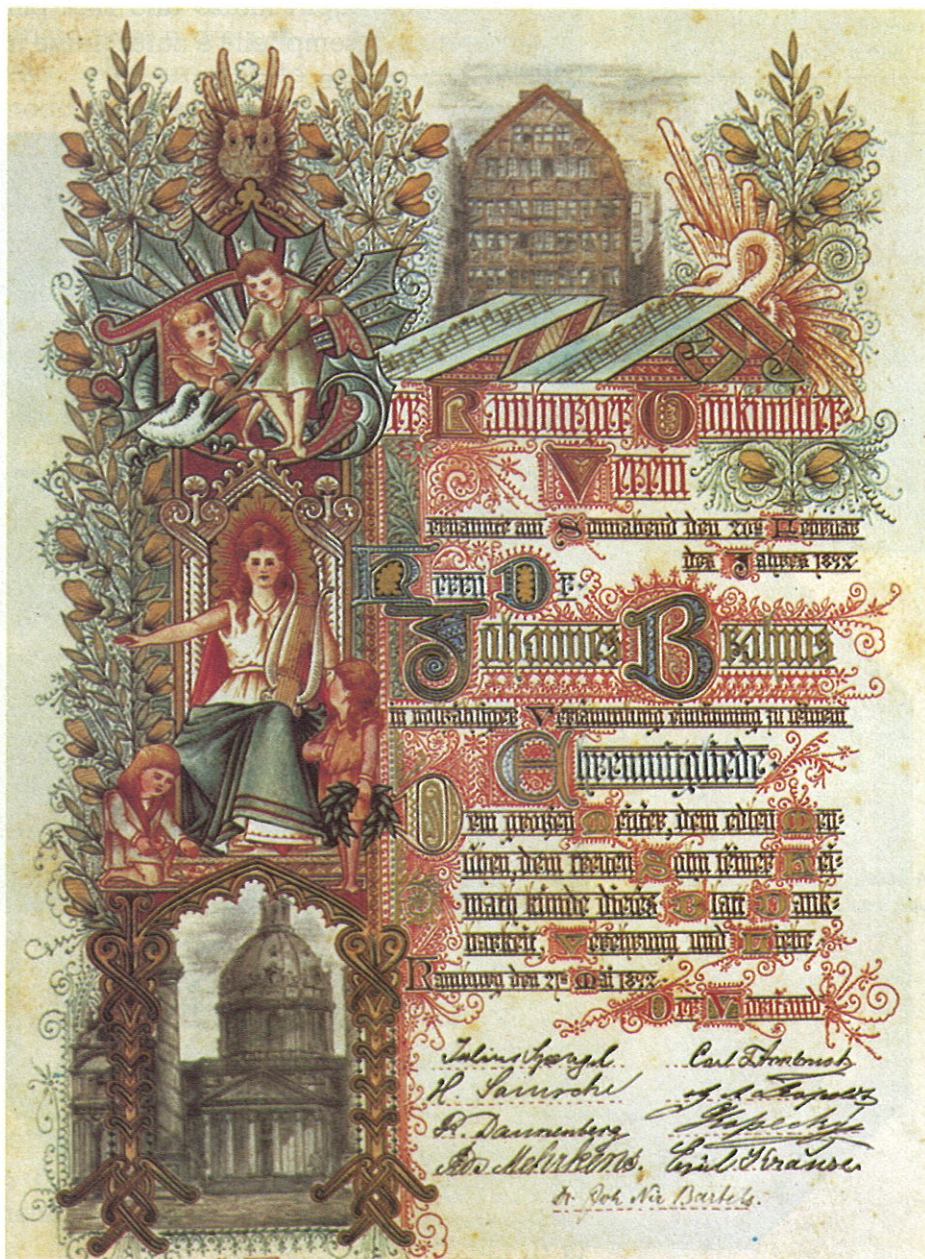 Der Hamburger Tonkünstler-
Verein
ernannte am Sonnabend den Februar
des Jahres 1892
Herrn Dr.
Johannes Brahms
in vollzähliger Versammlung einstimmig zu seinem
Ehrenmitgliede.
Dem großen Meister, dem edlen Men-
schen, dem treuen Sohn seiner Hei-
math künde dieses Blatt Dank-
barkeit, Verehrung und Liebe.
Hamburg den Mai 1892
Der Vorstand
Julius Spengel Carl Armbrust
H.
R. Dannenberg
Mehrkens. Emil Krause
Dr. Joh. Nic Bartels.